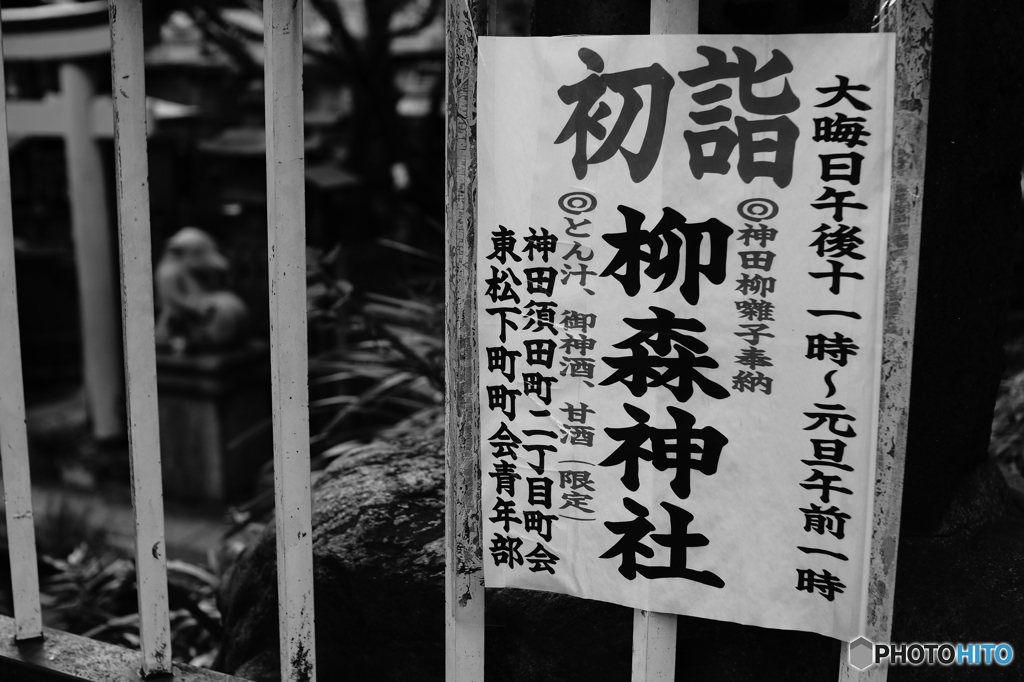 初詣
大晦日午後十一時～元旦午前一時
◎神田柳囃子奉納
柳森神社
◎とん汁、御神酒、甘酒(限定)
神田須田町二丁目町会
東松下町町会青年部
PHOTOHITO